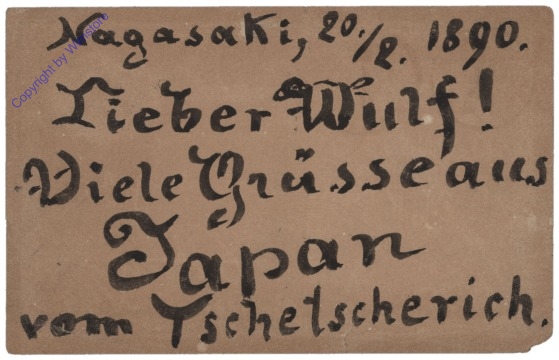 Nagasaki, 20./2. 1890.
Lieber Wulf!
Viele Grüsse aus
Japan
vom Tschetscherich.